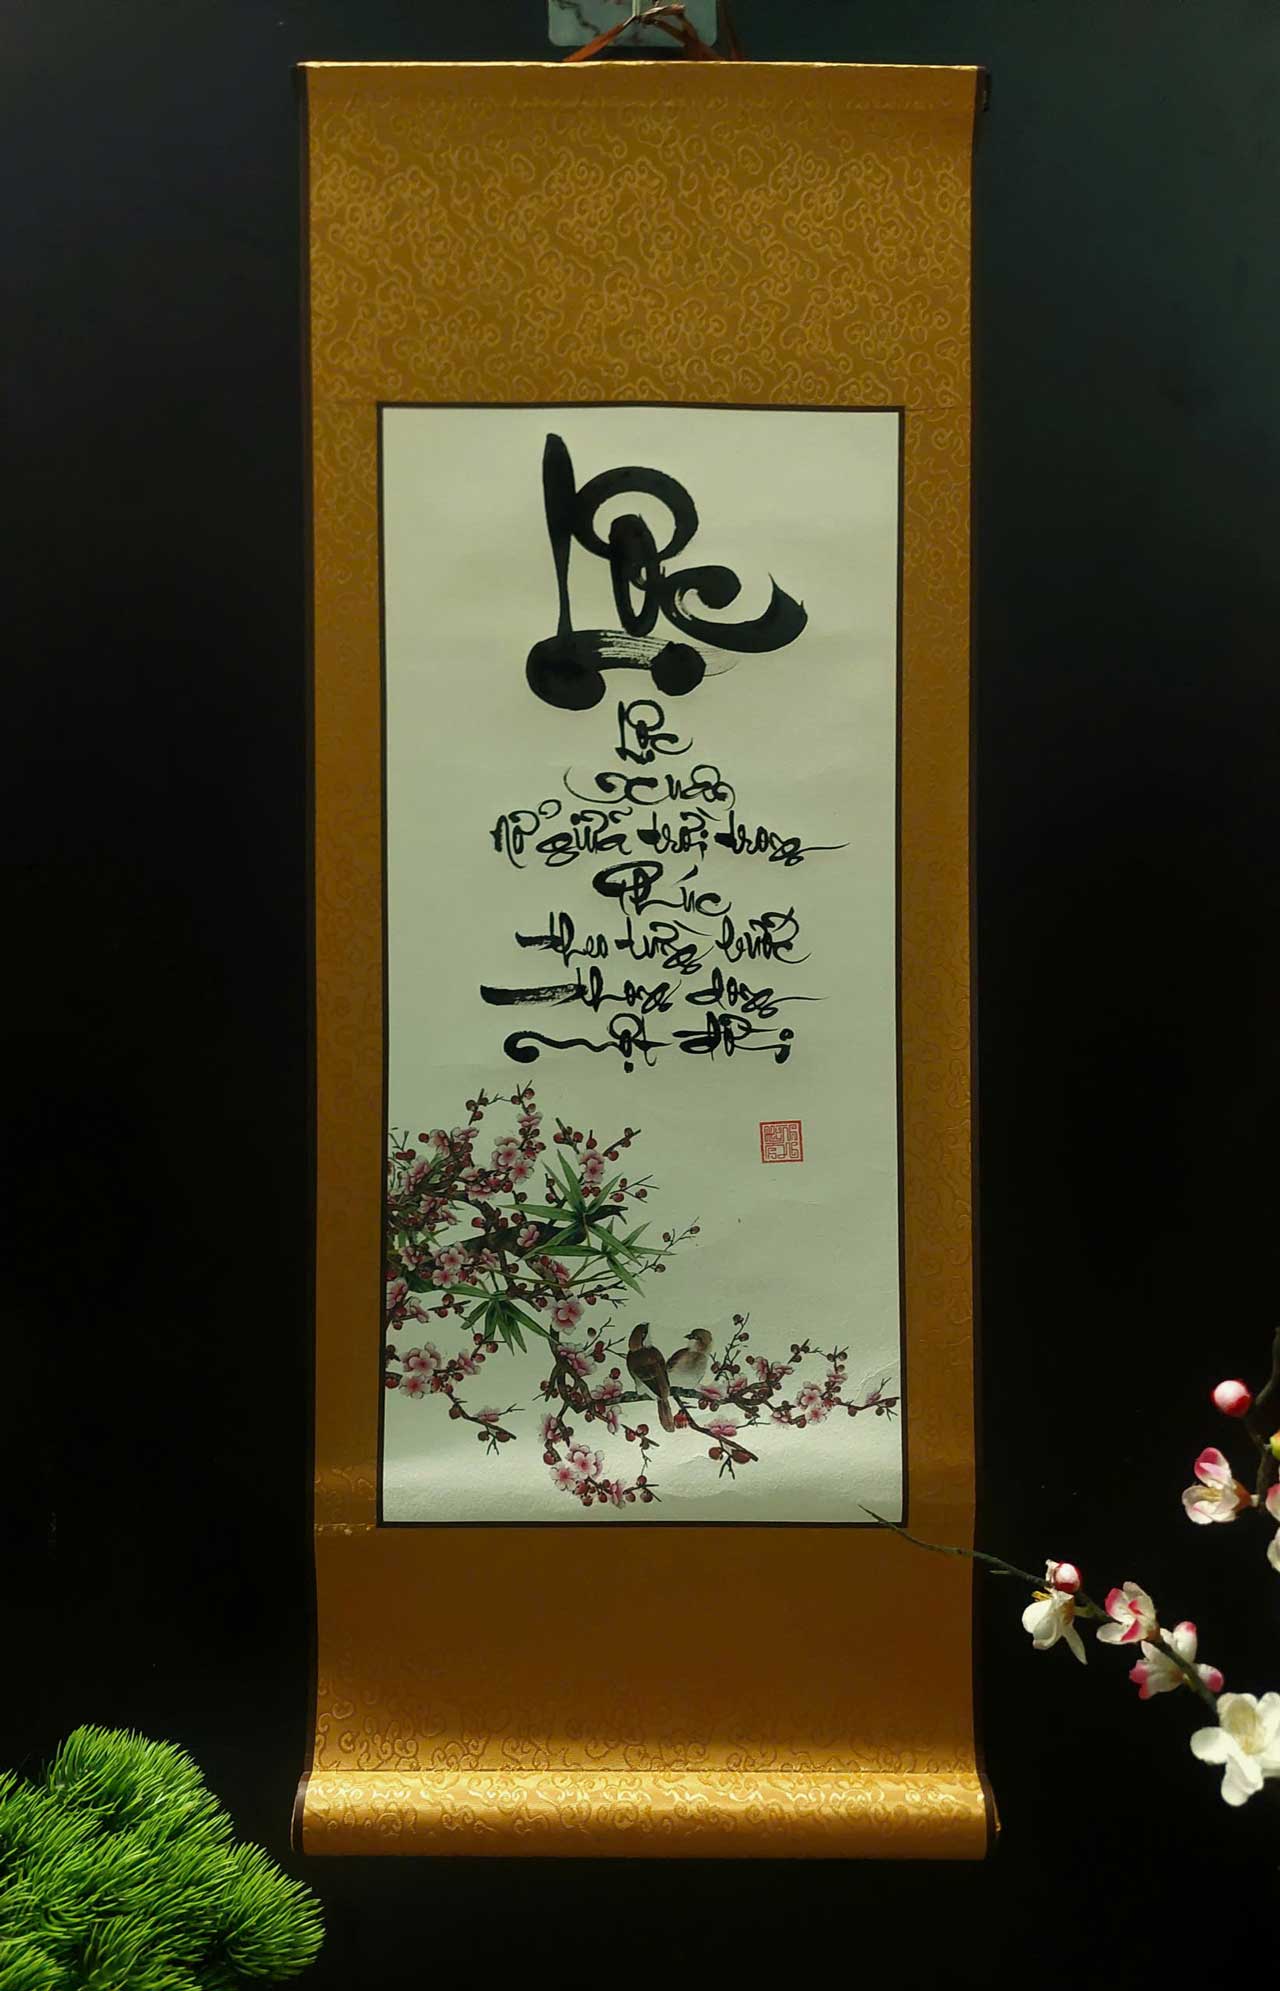 Lộc
Lộc
Xuân
nở giữa trời trong
Phúc
theo từng bước
thong dong
một đời